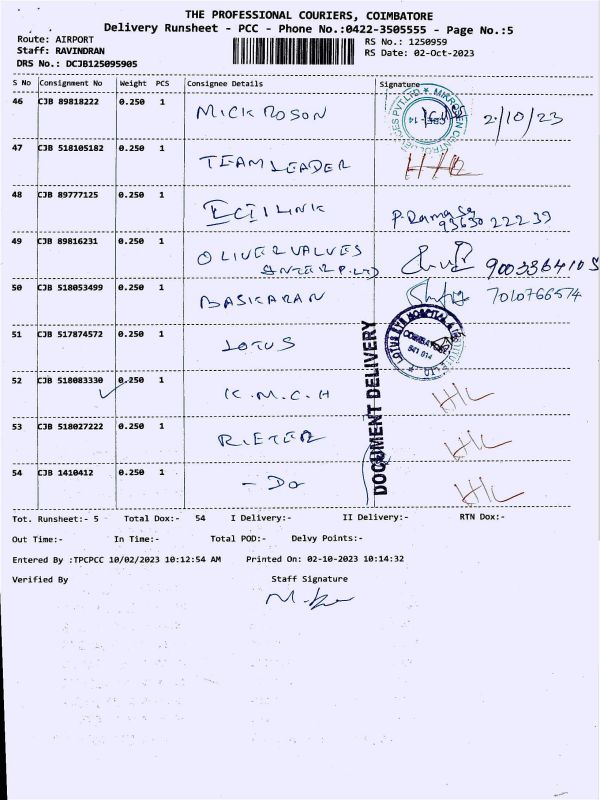 THE PROFESSIONAL COURIERS, COIMBATORE
Delivery Runsheet - PCC - Phone No.:0422-3505555 - Page No.:5
Route: AIRPORT
RS No.: 1250959
Staff: RAVINDRAN
RS Date: 02-Oct-2023
DRS No.: DCJB125095905
S No Consignment No Weight PCS Consignee Details Signature
46 CJB 89818222 0.250 1 MICKROSON 2/10/23
47 CJB 518105182 0.250 1 TEAM LEADER
48 CJB 89777125 0.250 1 ECI LINK
93630 22239
49 CJB 89816231 0.250 1 OLIVER VALVES
50 CJB 518053499 0.250 1 BASKARAN 7010766574
51 CJB 517874572 0.250 1 LOTUS
52 CJB 518083330 0.250 1 K.M.C.H
53 CJB 518027222 0.250 1 RIETER
54 CJB 1410412 0.250 1 - Do
DOCUMENT DELIVERY
Tot. Runsheet:- 5 Total Dox:- 54 I Delivery:- II Delivery:- RTN Dox:-
Out Time:- In Time:- Total POD:- Delvy Points:-
Entered By :TPCPCC 10/02/2023 10:12:54 AM Printed On: 02-10-2023 10:14:32
Verified By Staff Signature